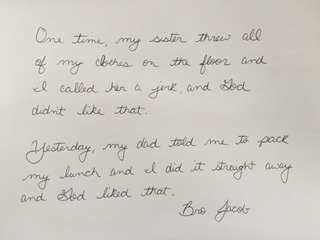 One time, my sister threw all
of my clothes on the floor and
I called her a jerk, and God
didn't like that.
Yesterday, my dad told me to pack
my lunch and I did it straight away
and God liked that.
Bro. Jacob